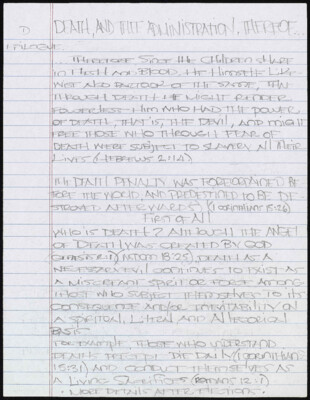 DEATH, AND THE ADMINISTRATION, THEREOF...
PROLOGUE
... THEREFORE SINCE THE CHILDREN SHARE
IN FLESH AND BLOOD, HE HIMSELF LIKE-
WISE ALSO PARTOOK OF THE SAME, THAT
THROUGH DEATH HE MIGHT RENDER
POWERLESS HIM WHO HAD THE POWER
OF DEATH, THAT IS, THE DEVIL, AND MIGHT
FREE THOSE WHO THROUGH FEAR OF
DEATH WERE SUBJECT TO SLAVERY ALL THEIR
LIVES (HEBREWS 2:14)
THE DEATH PENALTY WAS FOREORDAINED BE-
FORE THE WORLD, AND PREDESTINED TO BE DE-
STROYED AFTERWARDS (1 CORINTHIANS 15:26)
FIRST OF ALL
WHO IS DEATH? ALTHOUGH THE ANGEL
OF DEATH WAS CREATED BY GOD
DEATH AS A
NECESSARY EVIL CONTINUES TO EXIST AS
A MISCREANT SPIRIT OR FORCE AMONG
THOSE WHO SUBJECT THEMSELVES TO ITS
CONSEQUENCE AND/OR INEVITABILITY ON
A SPIRITUAL, LITERAL AND ALLEGORICAL
BASIS
FOR EXAMPLE, THOSE WHO UNDERSTAND
DEATH'S PRECEPT DIE DAILY (1 CORINTHIANS
15:31) AND CONDUCT THEMSELVES AS
A LIVING SACRIFICE (ROMANS 12:1)
MORE DETAILS AFTER THE